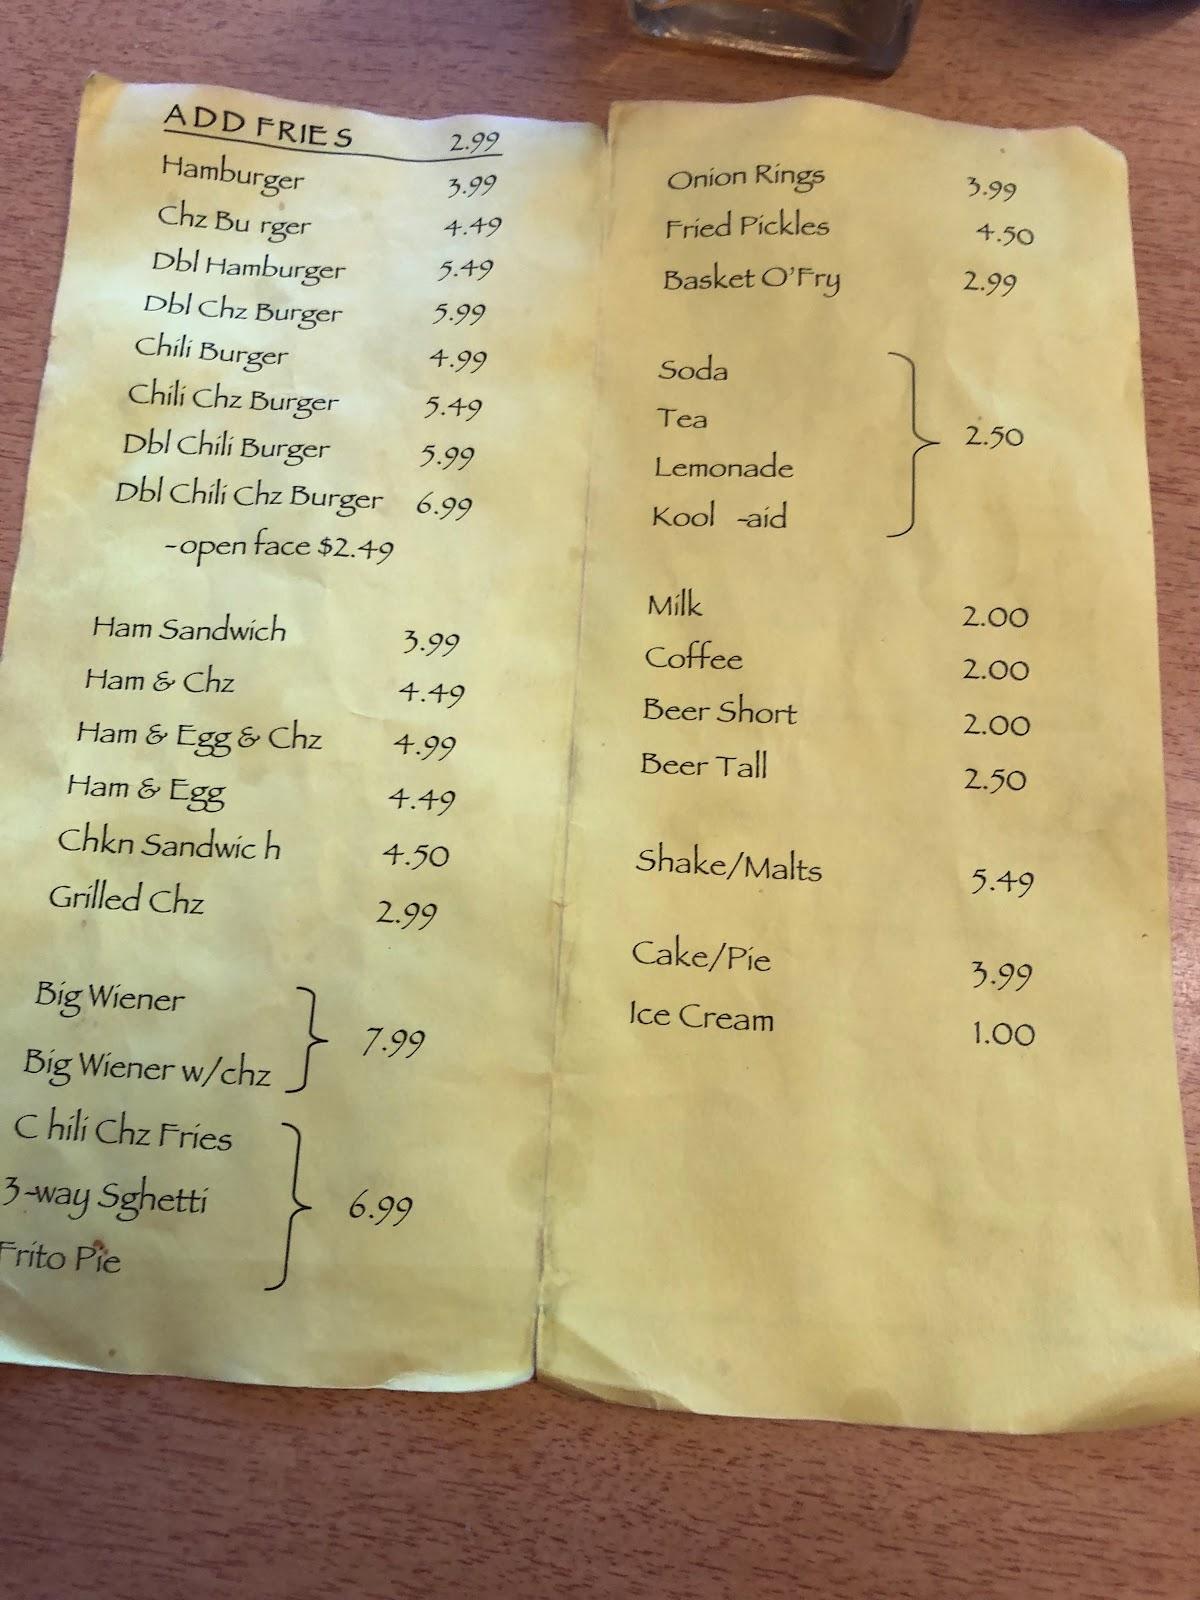 ADD FRIES 2.99
Hamburger 3.99
Chz Bu rger 4.49
Dbl Hamburger 5.49
Dbl Chz Burger 5.99
Chili Burger 4.99
Chili Chz Burger 5.49
Dbl Chili Burger 5.99
Dbl Chili Chz Burger 6.99
-open face $2.49
Ham Sandwich 3.99
Ham & Chz 4.49
Ham & Egg & Chz 4.99
Ham & Egg 4.49
Chkn Sandwic h 4.50
Grilled Chz 2.99
Big Wiener
7.99
Big Wiener w/chz
C hili Chz Fries
3-way Sghetti 6.99
Frito Pie
Onion Rings 3.99
Fried Pickles 4.50
Basket O'Fry 2.99
Soda
Tea 2.50
Lemonade
Kool -aid
Milk 2.00
Coffee 2.00
Beer Short 2.00
Beer Tall 2.50
Shake/Malts 5.49
Cake/Pie 3.99
Ice Cream 1.00